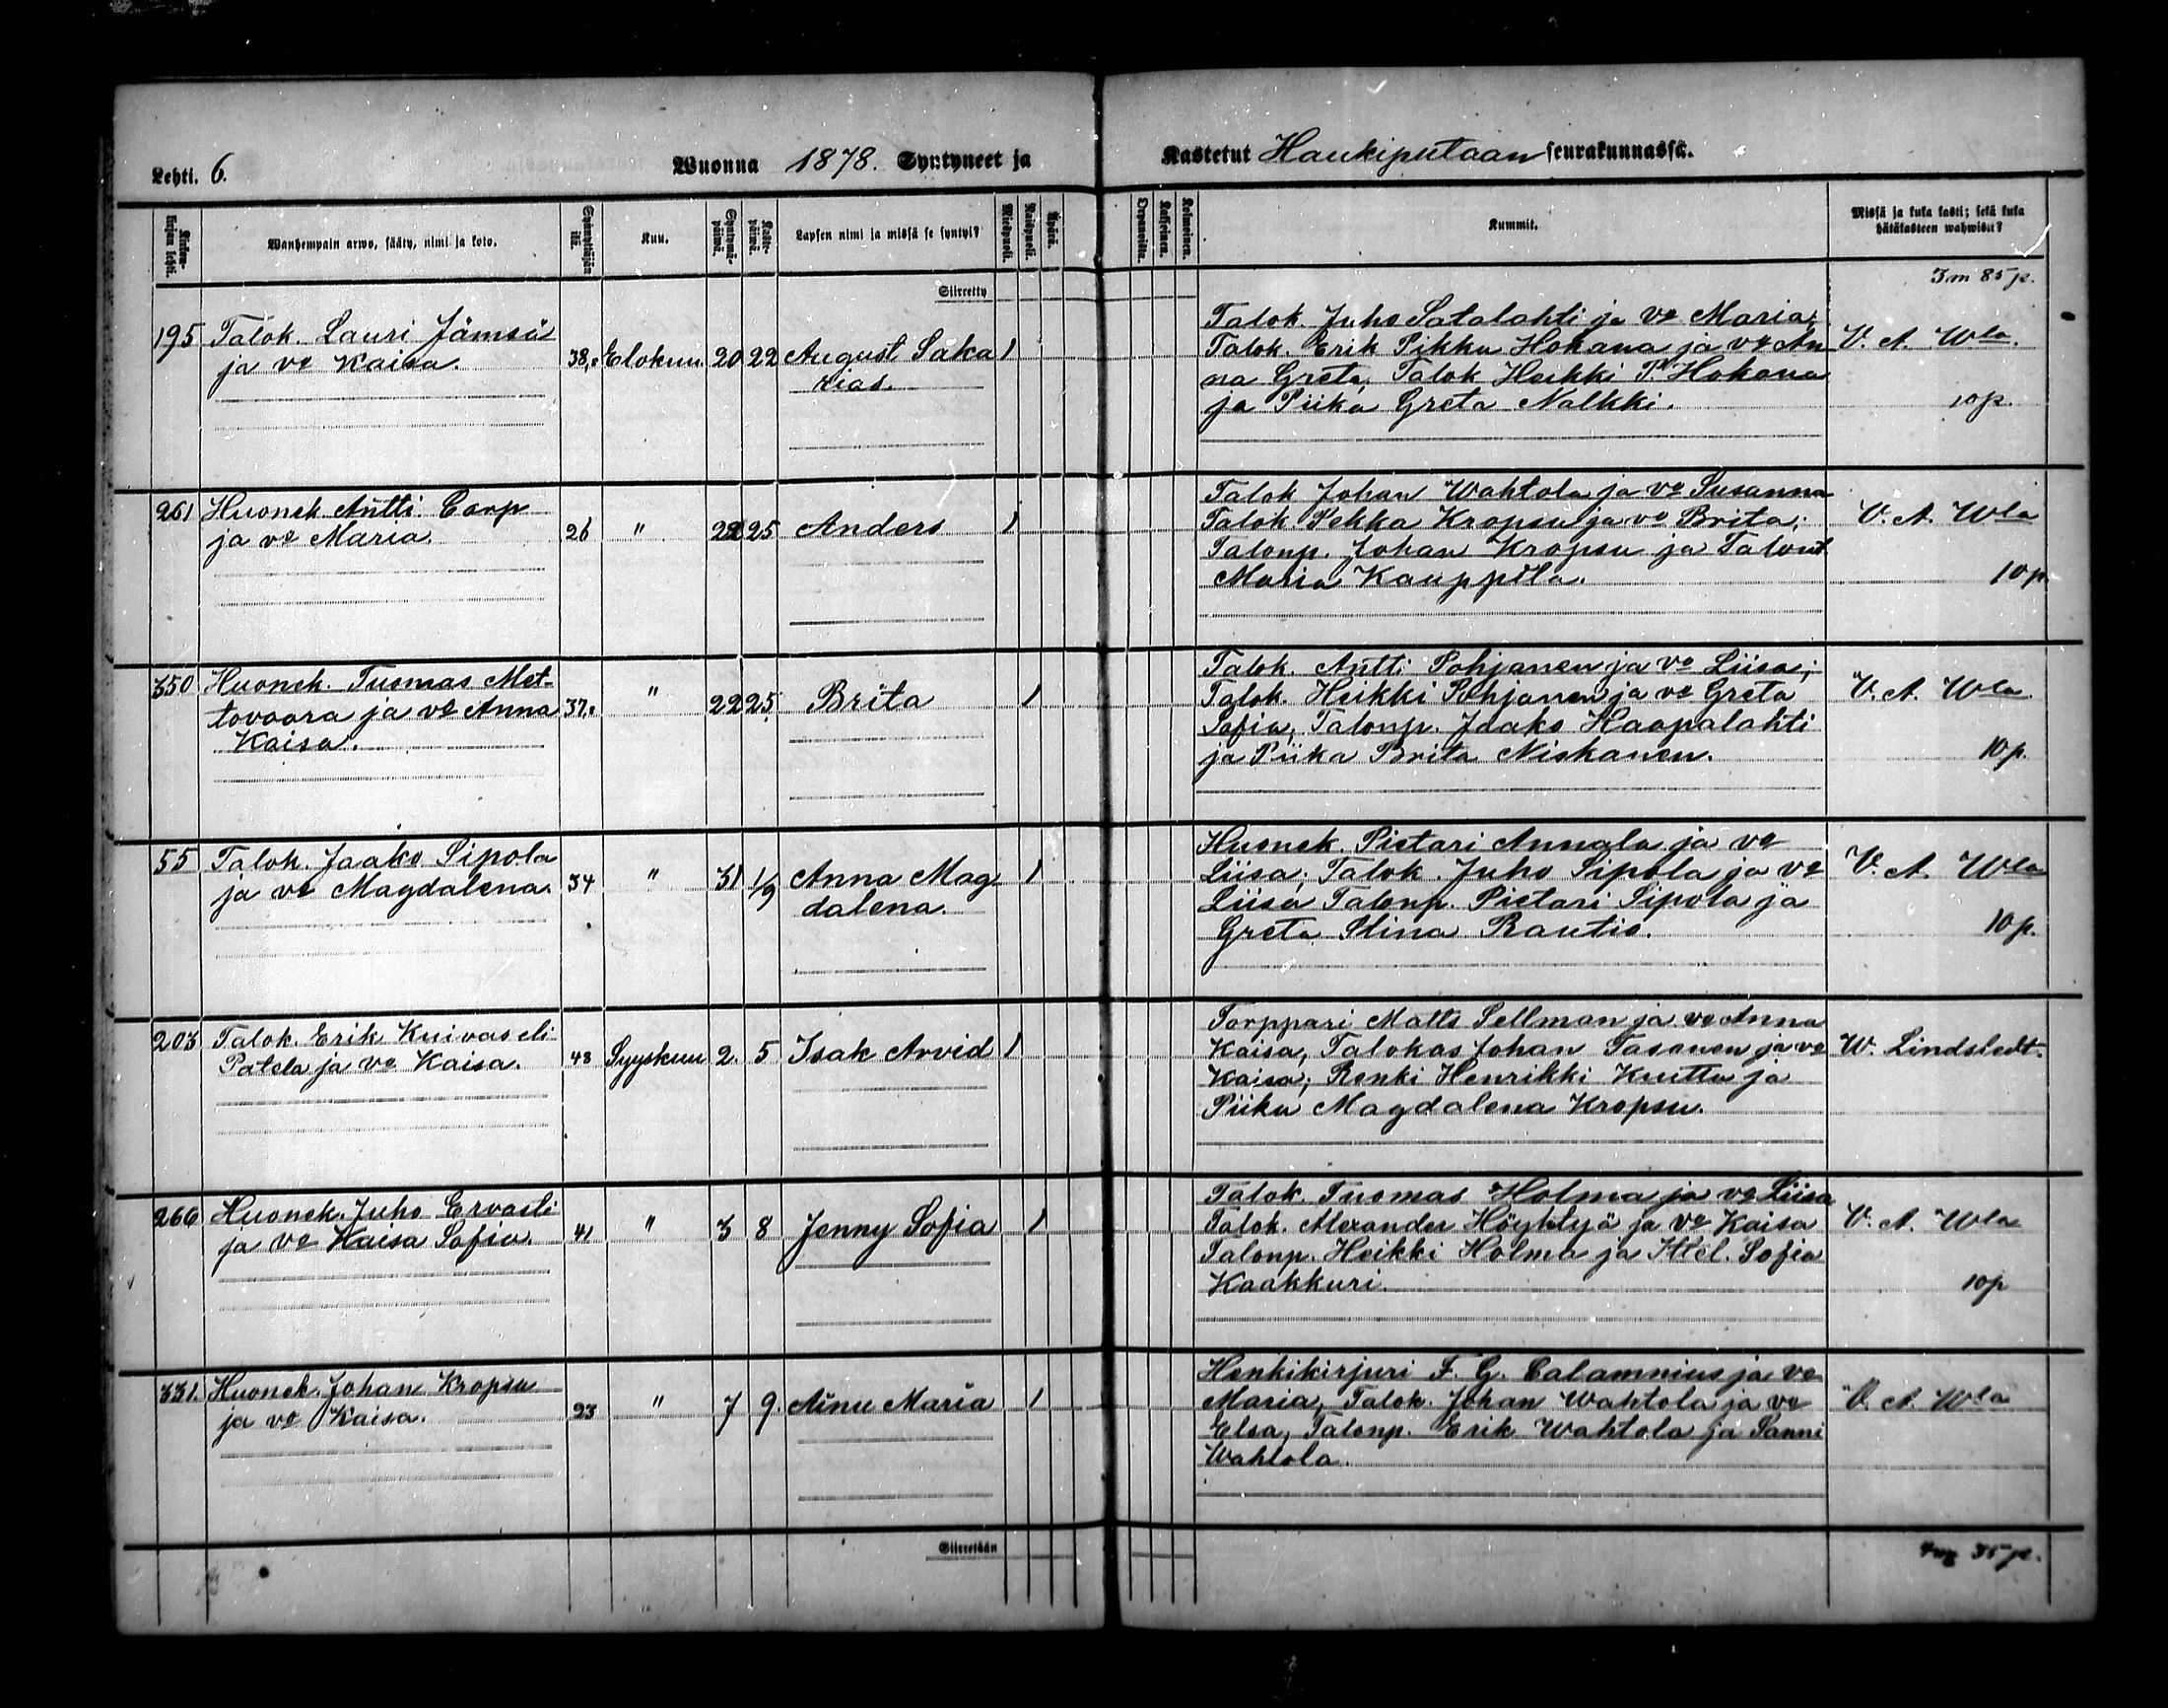 Lehti. 6.
Wuonna 1878. Syntyneet ja
Kastetut Haukiputaan seurakunnassa.
Kirkon-kirjan lehti.
Wanhempain arwo, sääty, nimi ja koto.
Synnyttäjän ikä.
Kuu.
Syntymä-päiwä.
Kaste-päiwä.
Lapsen nimi ja missä se syntyi?
Miespuoli.
Naispuoli.
Äpärä.
Orpanoitta.
Kaksoinen.
Kolmoinen.
Kummit.
Missä ja kuka kasti; sekä kuka
hätäkasteen wahwisti?
Siirretty
3m 85p.
195 Talok. Lauri Jämsä
ja vo Kaisa.
38, Elokuu 20 22 August Saka
rias. 1
Talok. Juho Satalahti ja vo Maria;
Talok. Erik Pikku Hokana ja vo An
na Greta; Talok Heikki P. Hokana
ja Piika Greta Nalkki.
V. A. Wla.
10p.
261 Huonek Antti Corp
ja vo Maria.
26 " 22 25 Anders 1
Talok Johan Wahtola ja vo Susanna
Talok Pekka Kropsu ja vo Brita;
Talonp. Johan Kropsu ja Talont
Maria Kauppila.
V. A. Wla
10p.
350 Huonek. Tuomas Met-
tovaara ja vo Anna
Kaisa.
37, " 22 25 Brita 1
Talok. Antti Pohjanen ja vo Liisa;
Talok. Heikki Pohjanen ja vo Greta
Sofia; Talonp. Jaako Haapalahti
ja Piika Brita Niskanen.
V. A. Wla.
10p.
55 Talok. Jaako Sipola
ja vo Magdalena.
34 " 31 1/9 Anna Mag
dalena. 1
Huonek. Pietari Annala ja vo
Liisa; Talok. Juho Sipola ja vo
Liisa Talonp. Pietari Sipola ja
Greta Stina Rautio.
V. A. Wla
10p.
203 Talok. Erik Kuivas eli
Patela ja vo Kaisa.
48 Syyskuu 2. 5 Isak Arvid 1
Torppari Matts Sellman ja vo Anna
Kaisa; Talokas Johan Tasanen ja vo
Kaisa; Renki Henrikki Kutta ja
Piika Magdalena Kropsu.
W. Lindstedt.
266 Huonek. Juho Ervasti
ja vo Kaisa Sofia.
41 " 3 8 Jenny Sofia 1
Talok. Tuomas Holma ja vo Liisa
Talok. Alexander Höyhtyä ja vo Kaisa
Talonp. Heikki Holma ja Itsel. Sofia
Kaakkuri.
V. A. Wla
10p
331. Huonek. Johan Kropsu
ja vo Kaisa.
23 " 7 9. Ainu Maria 1
Henkikirjuri F. G. Calamnius ja vo
Maria; Talok. Johan Wahtola ja vo
Elsa; Talonp. Erik Wahtola ja Sanni
Wahtola.
V. A. Wla
Siirretään
4m 35p.